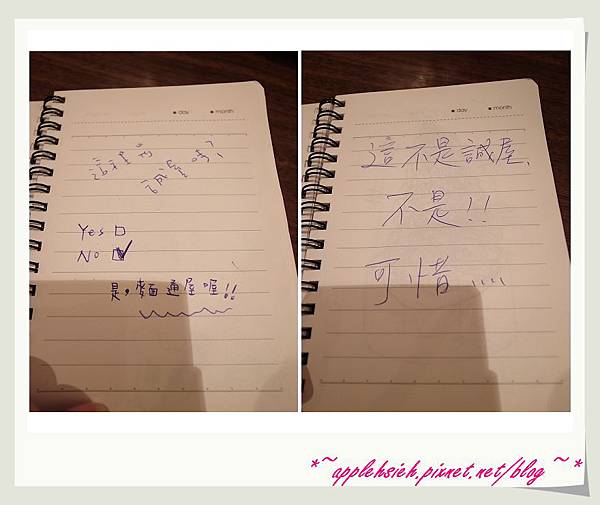 • day • month
Yes □
No ☑
是。麵通屋喔!!
• day • month
這不是誠屋、
不是!!
可惜....
*~applehsieh.pixnet.net/blog ~*